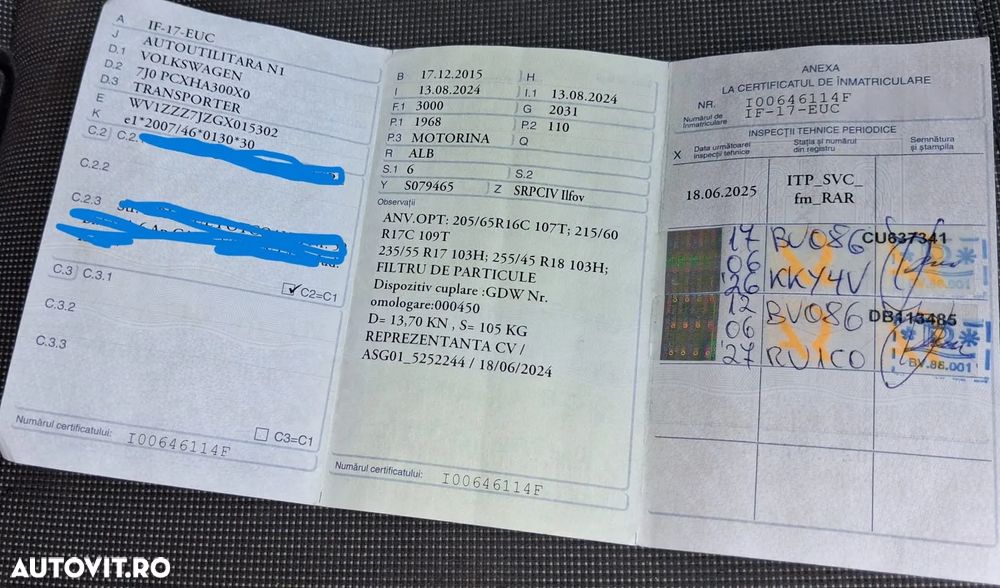 A IF-17-EUC
J AUTOUTILITARA N1
D.1 VOLKSWAGEN
D.2 7J0 PCXHA300X0
D.3 TRANSPORTER
E WV1ZZZ7JZGX015302
K e1*2007/46*0130*30
C.2 C.2.
C.2.2
C.2.3
C2=C1
C.3 C.3.1
C.3.2
C.3.3
C3=C1
Numărul certificatului: I00646114F
B 17.12.2015 H
I 13.08.2024 I.1 13.08.2024
F.1 3000 G 2031
P.1 1968 P.2 110
P.3 MOTORINA Q
R ALB
S.1 6 S.2
Y S079465 Z SRPCIV Ilfov
Observații
ANV.OPT: 205/65R16C 107T; 215/60
R17C 109T
235/55 R17 103H; 255/45 R18 103H;
FILTRU DE PARTICULE
Dispozitiv cuplare :GDW Nr.
omologare:000450
D= 13,70 KN , S= 105 KG
REPREZENTANTA CV /
ASG01_5252244 / 18/06/2024
Numărul certificatului: I00646114F
ANEXA
LA CERTIFICATUL DE ÎNMATRICULARE
NR. I00646114F
Numărul de înmatriculare IF-17-EUC
INSPECȚII TEHNICE PERIODICE
X Data următoarei inspecții tehnice
Stația și numărul din registru
Semnătura și ștampila
18.06.2025 ITP_SVC_
fm_RAR
17 BV086 CU637341
06
26 KKY4V BV.86.001
12 BV086 DB113485
06
27 RV1CO BV.86.001
AUTOVIT.RO